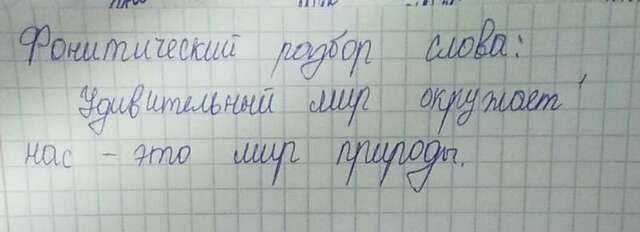 Фонитический разбор слова:
Удивительный мир окружает
нас - это мир природы.